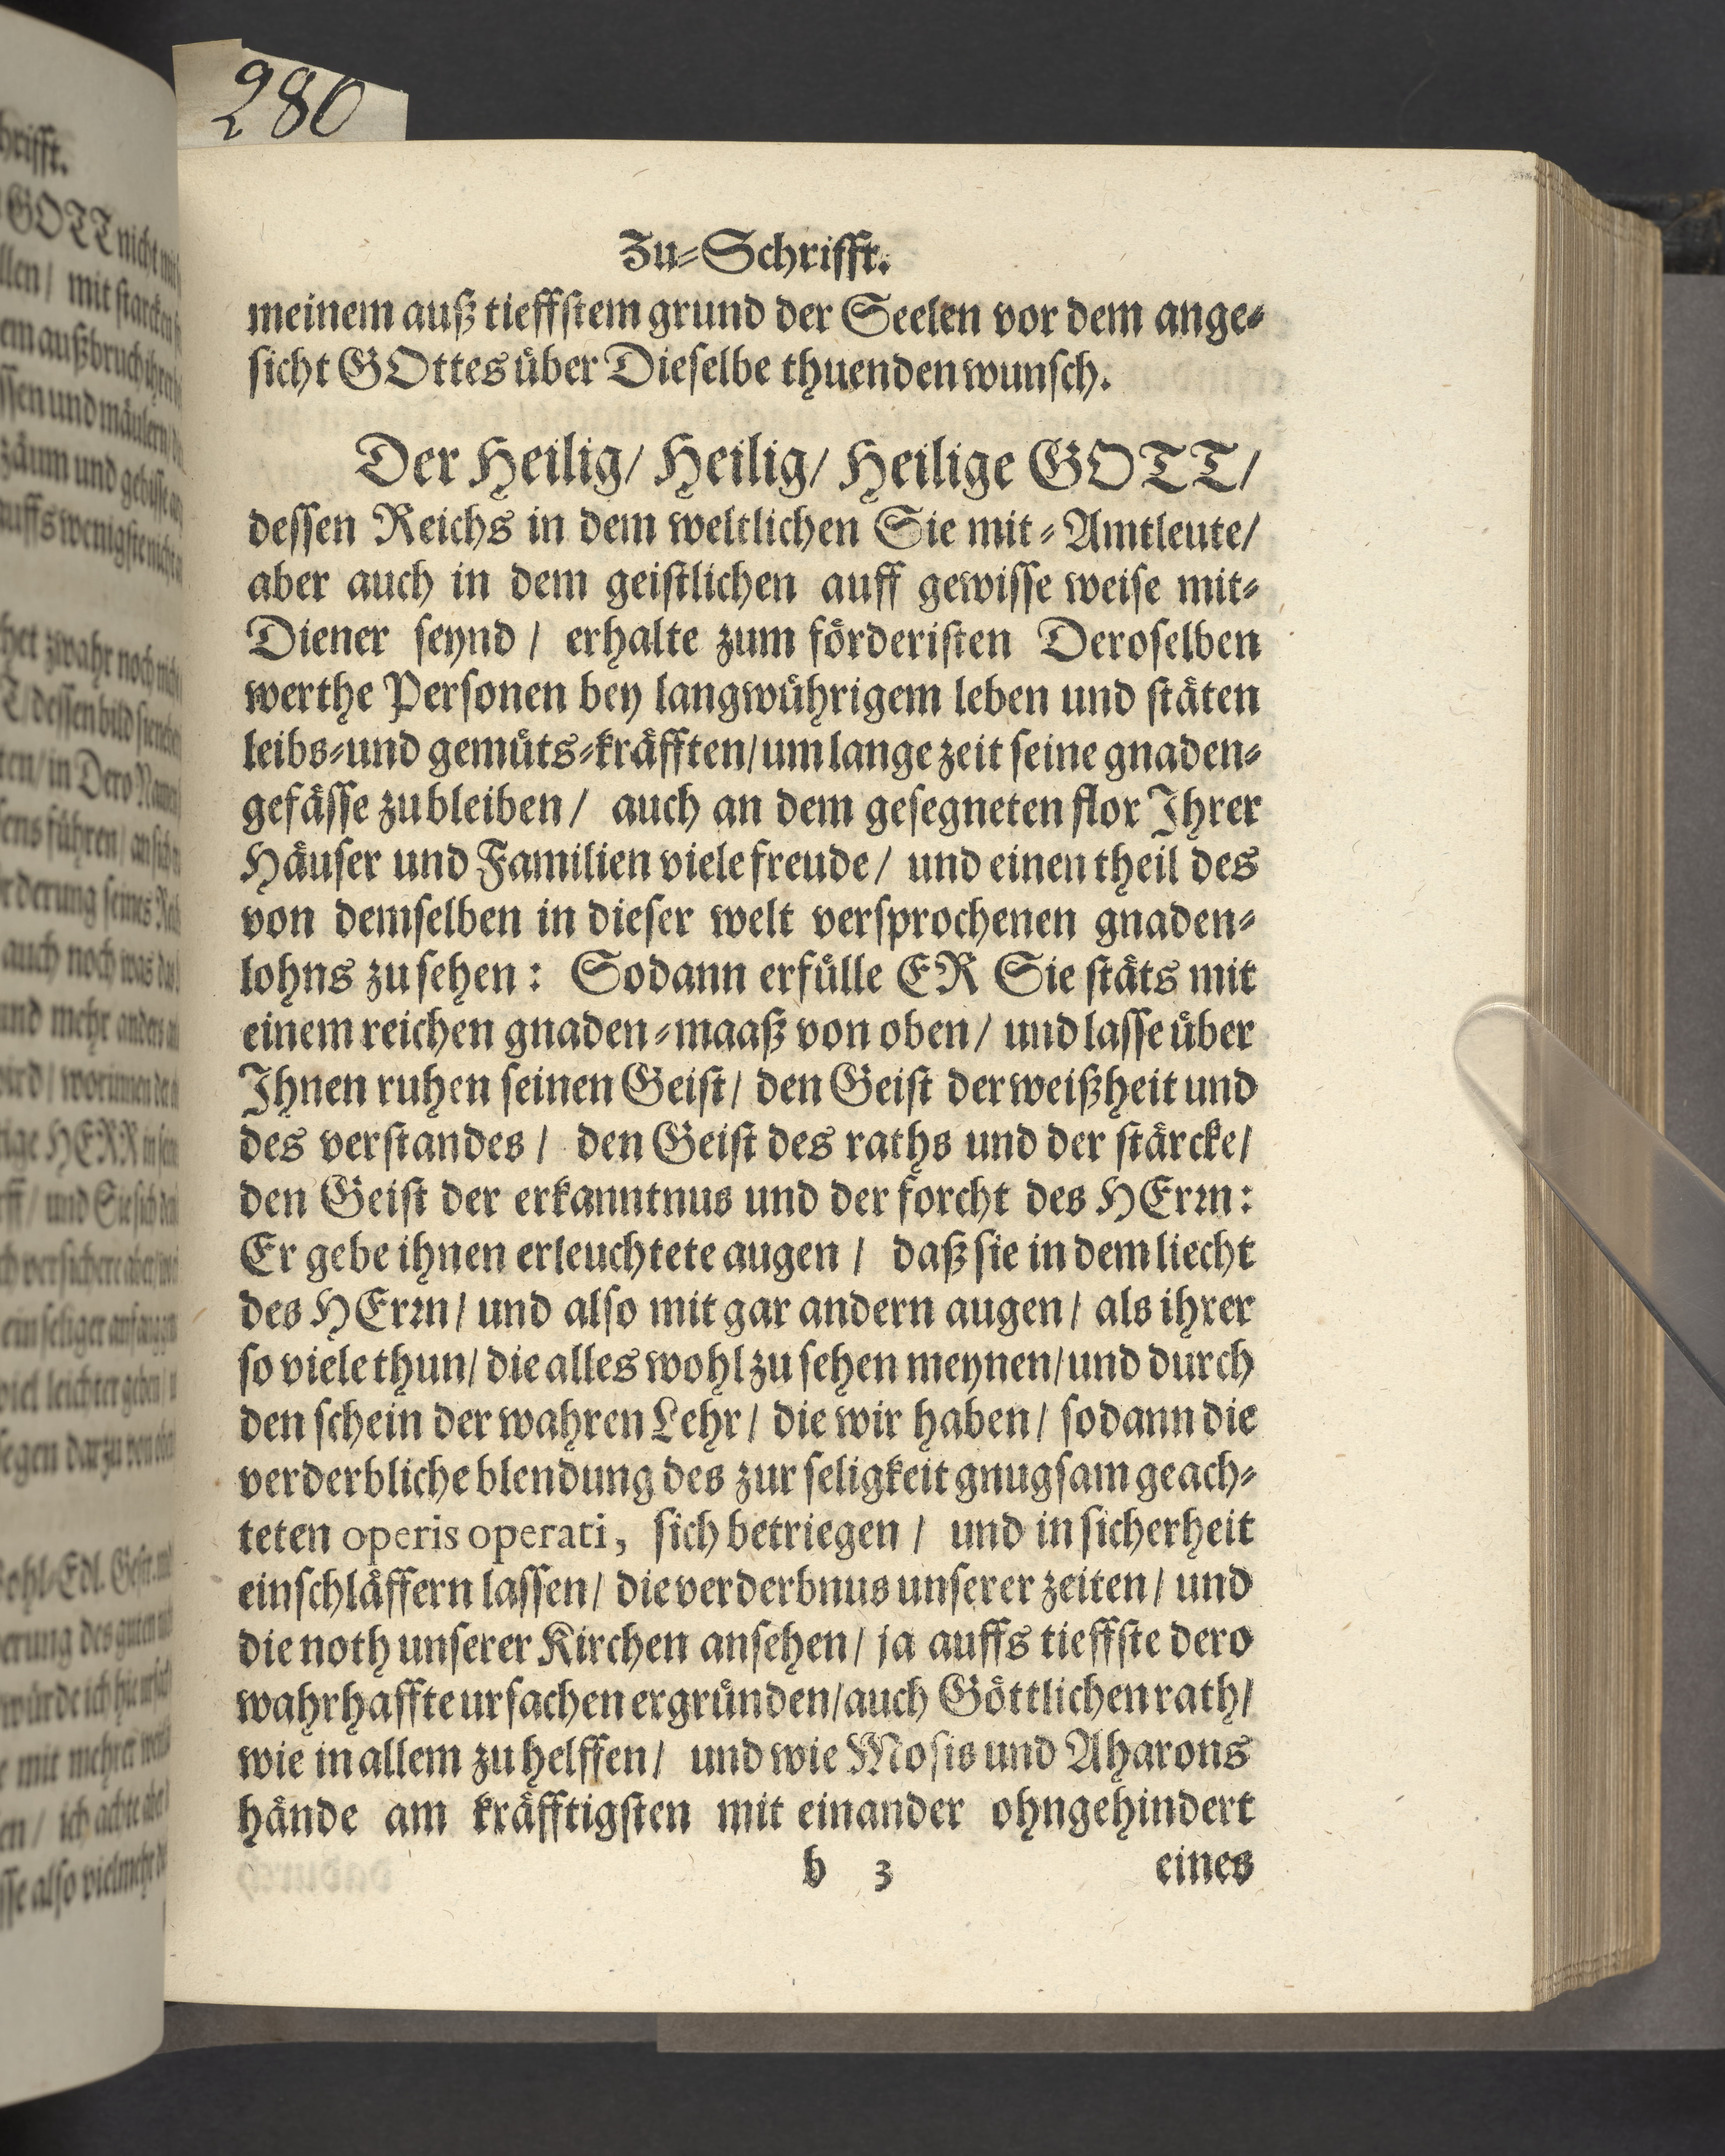 280
Zu-Schrifft.
meinem auß tieffstem grund der Seelen vor dem ange-
sicht GOttes über Dieselbe thuenden wunsch.
Der Heilig/ Heilig/ Heilige GOTT/
dessen Reichs in dem weltlichen Sie mit-Amtleute/
aber auch in dem geistlichen auff gewisse weise mit-
Diener seynd / erhalte zum förderisten Deroselben
werthe Personen bey langwührigem leben und stäten
leibs-und gemüts-kräfften/um lange zeit seine gnaden-
gefässe zu bleiben / auch an dem gesegneten flor Ihrer
Häuser und Familien viele freude / und einen theil des
von demselben in dieser welt versprochenen gnaden-
lohns zu sehen : Sodann erfülle ER Sie stäts mit
einem reichen gnaden-maaß von oben / und lasse über
Ihnen ruhen seinen Geist / den Geist der weißheit und
des verstandes / den Geist des raths und der stärcke/
den Geist der erkanntnus und der forcht des HErrn:
Er gebe ihnen erleuchtete augen / daß sie in dem liecht
des HErrn / und also mit gar andern augen / als ihrer
so viele thun/ die alles wohl zu sehen meynen/und durch
den schein der wahren Lehr / die wir haben / sodann die
verderbliche blendung des zur seligkeit gnugsam geach-
teten operis operati, sich betriegen / und in sicherheit
einschläffern lassen/ die verderbnus unserer zeiten / und
die noth unserer Kirchen ansehen / ja auffs tieffste dero
wahrhaffte ursachen ergründen/auch Göttlichen rath/
wie in allem zu helffen / und wie Mosis und Aharons
hände am kräfftigsten mit einander ohngehindert
b 3 eines